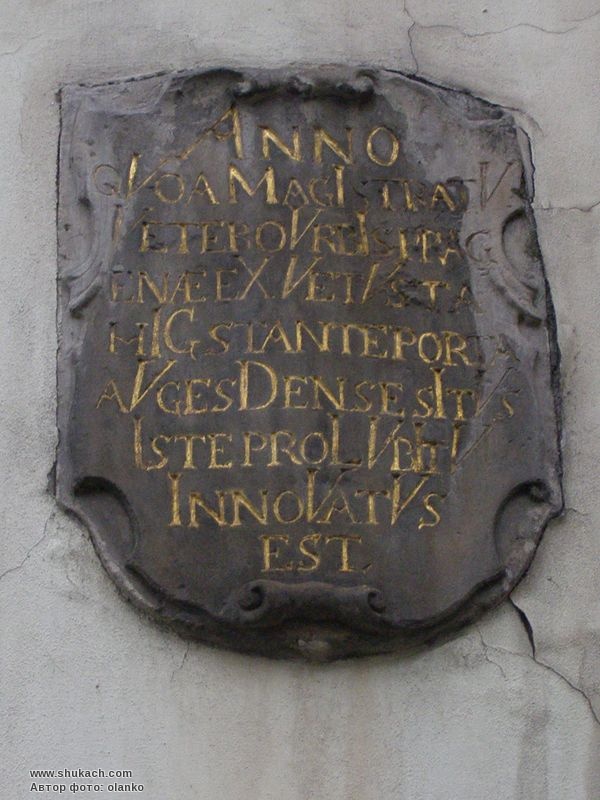 ANNO
QVOA MAGISTRATV
VETEROVRBIS PRAG
ENÆ EX VETVSTA
HIC STANTE PORTA
AVGESDENSE SITVS
ISTE PRO LVBITV
INNOVATVS
EST.
www.shukach.com
Автор фото: olanko